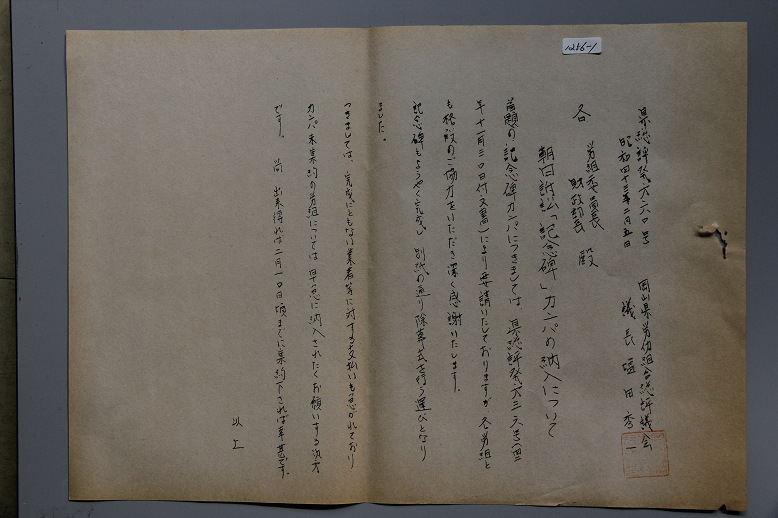 1256-1
県総評発六六〇号
昭和四十三年二月五日
岡山県労働組合総評議会
議長
各
労組委員長
財政部長
殿
朝日訴訟「記念碑」カンパの納入について
首題の「記念碑カンパ」につきましては、県総評発六三六号(四二
年十一月三〇日付文書)により要請いたしておりますが各労組と
も格段のご協力をいただき深く感謝いたします。
記念碑もようやく完成し別紙の通り除幕式を行う運びとなり
ました。
つきましては、完成にともない業者等に対する支払いも急がれており
カンパ未集約の労組については早急に納入されたくお願いする次第
です。尚出来得れば二月一〇日頃までに集約下されば幸甚です。
以上